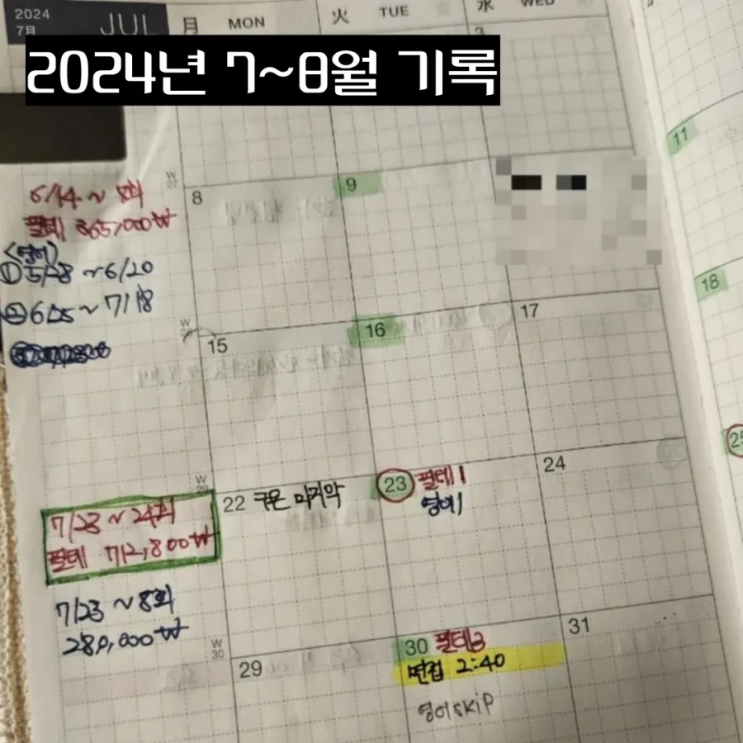 2024
7月
JUL
月 MON
火 TUE
水 WED
2024년 7~8월 기록
3
6/14 ~ 8회
필테 365,000₩
<영어>
① 5/28 ~ 6/20
② 6/25 ~ 7/18
W 27
8
9
11
15
16
17
18
W 29
7/23 ~ 24회
필테 712,800₩
22 구몬 마지막
23 필테1
영어1
24
7/23 ~ 8회
280,000₩
W 30
29
30 필테3
면접 2:40
영어 SKIP
31